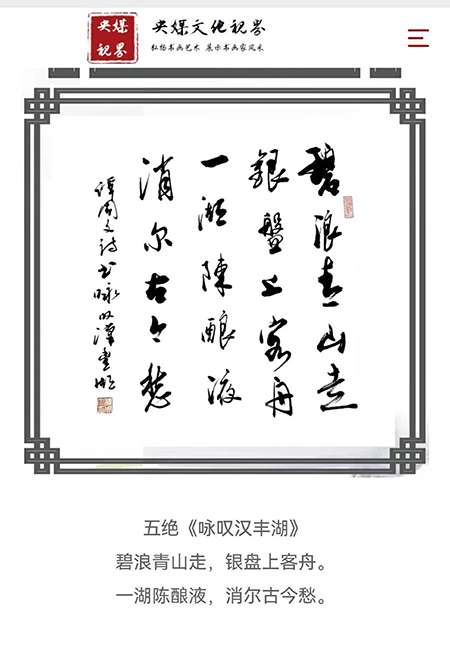 央媒视界
央媒文化视界
弘扬书画艺术 展示书画家风采
碧浪青山走
銀盤上客舟
一湖陳酿液
消尔古今愁
谭周文诗书咏叹漢丰湖
五绝《咏叹汉丰湖》
碧浪青山走，银盘上客舟。
一湖陈酿液，消尔古今愁。